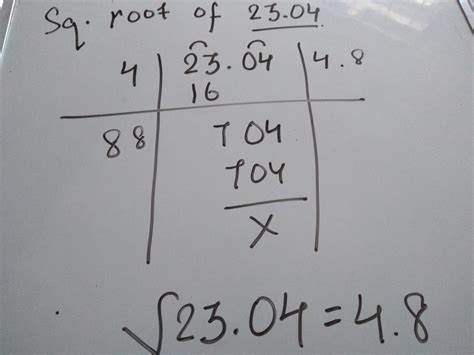 Sq. root of 23.04
4 23.04 4.8
16
88 704
704
X
√23.04 = 4.8